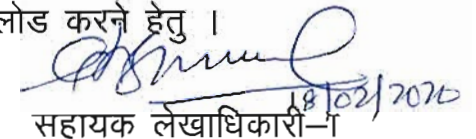 लोड करने हेतु ।
18/02/2020
सहायक लेखाधिकारी–I